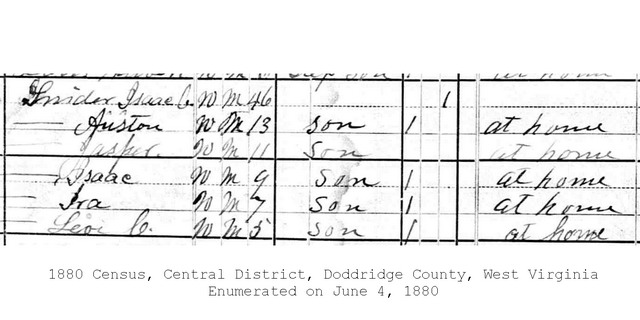 Snider Isaac C. W M 46 1
— Auston W M 13 son 1 at home
— Jasper W M 11 Son at home
— Isaac W M 9 Son 1 at home
— Ira W M 7 Son 1 at home
— Levi C. W M 5 son 1 at home
1880 Census, Central District, Doddridge County, West Virginia
Enumerated on June 4, 1880